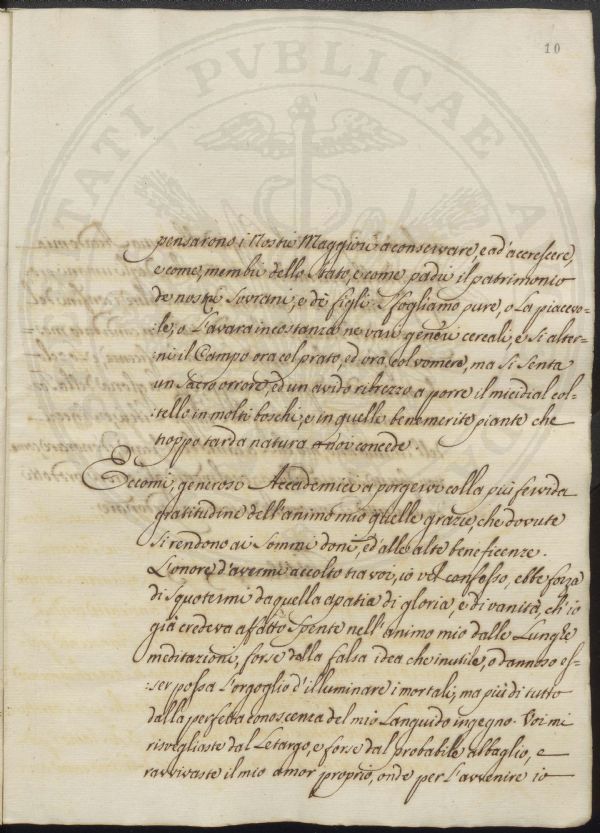 10
pensarono i Nostri Maggiori a conservare, e ad' accrescere,
e come membri dello Stato, e come padri il patrimonio
de nostri Sovrani, e dè figli. Sfogliamo pure, o la piacevo-
:le, o l'avara incostanza ne varj generi cereali, e si alter-
:ni il Campo ora col prato, ed ora col vomere, ma si senta
un Sacro orrore, ed un avido ribrezzo a porre il micidial col-
:tello in molti boschi, e in quelle benemerite piante che
troppo tarda natura a noi concede.
Eccomi, generosi Accademici a porgervi colla più fervida
gratitudine dell'animo mio quelle grazie, che dovute
si rendono ai Sommi doni, ed'alle alte beneficenze.
L'onore d'avermi accolto tra voi, io vel confesso, ebbe forza
di Squotermi da quella apatia di gloria, e di vanità, ch'io
già credeva affatto Spente nell'animo mio dalle Lunghe
meditazioni, forse dalla falsa idea che inutile, o dannoso es-
:ser possa l'orgoglio d'illuminare i mortali, ma più di tutto
dalla perfetta conoscenza del mio Languido ingegno. Voi mi
risvegliaste dal Letargo, e forse dal probabile abbaglio, e
ravvivaste il mio amor proprio, onde per l'avvenire io
STATI PVBLICAE